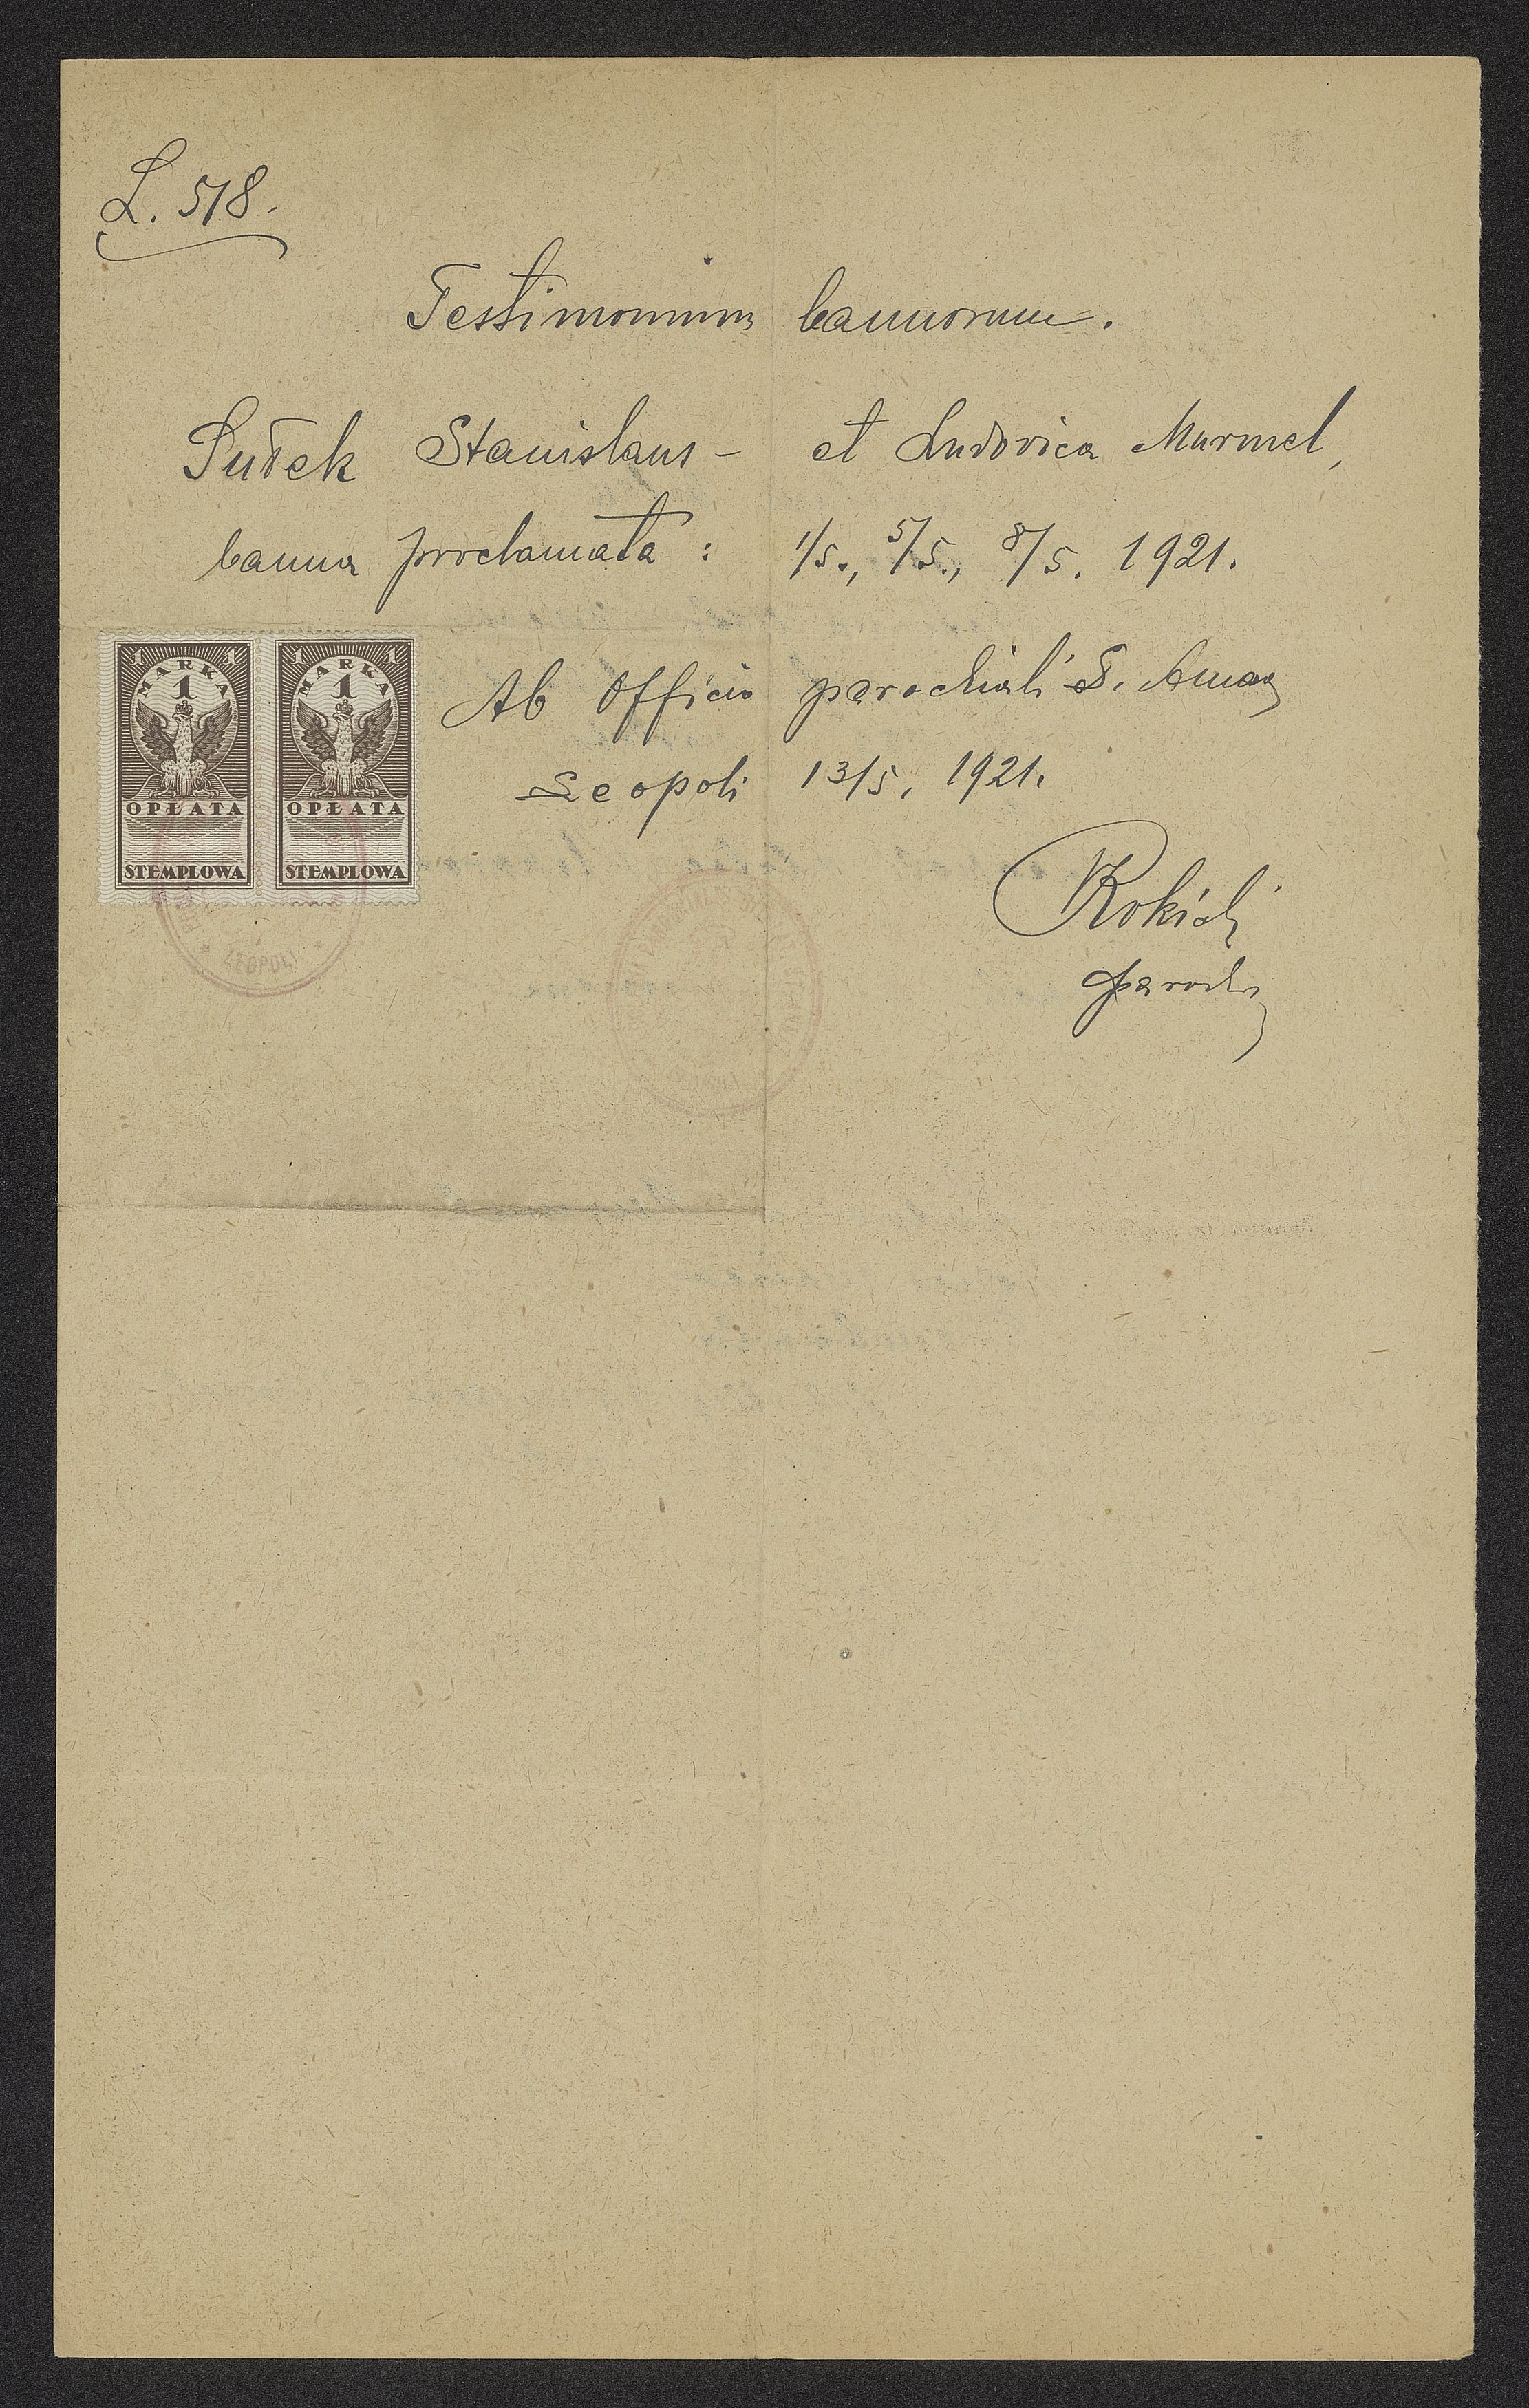 L. 518.
Testimonium bannorum.
Sułek Stanislaus - et Ludovica Murmel,
banna proclamata: 1/5., 5/5., 8/5. 1921.
Ab Officio parochiali S. Annae
Leopoli 13/5, 1921.
1 MARKA 1
1
OPŁATA
STEMPLOWA
1 MARKA 1
1
OPŁATA
STEMPLOWA
LEOPOLI
parochus